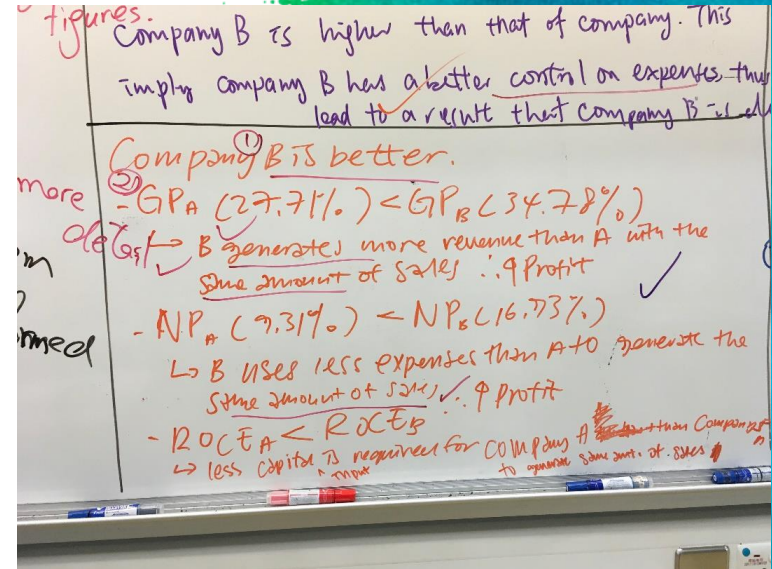 figures.
Company B is higher than that of company. This
imply company B has a better control on expenses, thus
lead to a result that Company B is
Company B is better.
①
more
②
- GPA (27.71%) < GPB (34.78%)
details
↳ B generates more revenue than A with the
same amount of sales ∴ ↑ Profit
- NPA (9.31%) < NPB (16.73%)
↳ B uses less expenses than A to generate the
same amount of sales ∴ ↑ Profit
- ROCEA < ROCEB
↳ less capital is required for company A than Company
input
to generate same amt. of sales